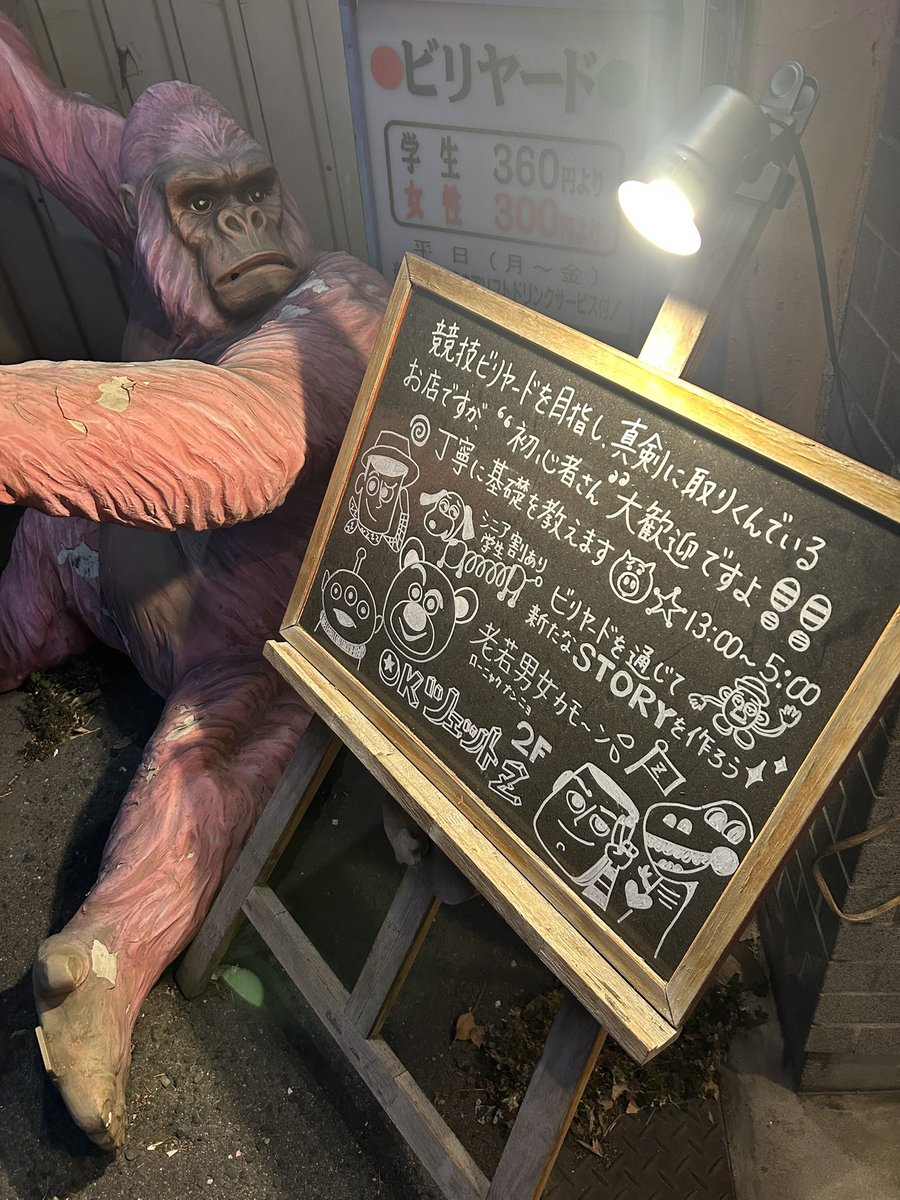 ビリヤード
学生 360円より
女性 300円より
平日(月〜金)
ソフトドリンクサービス付!
競技ビリヤードを目指し、真剣に取りくんでいる
お店ですが、“初心者さん”大歓迎ですよ!!
丁寧に基礎を教えます
13:00〜5:00
シニア割
学生割あり
ビリヤードを通じて
新たなSTORYを作ろう
老若男女カモーン
ローニャクナンニョ
2F